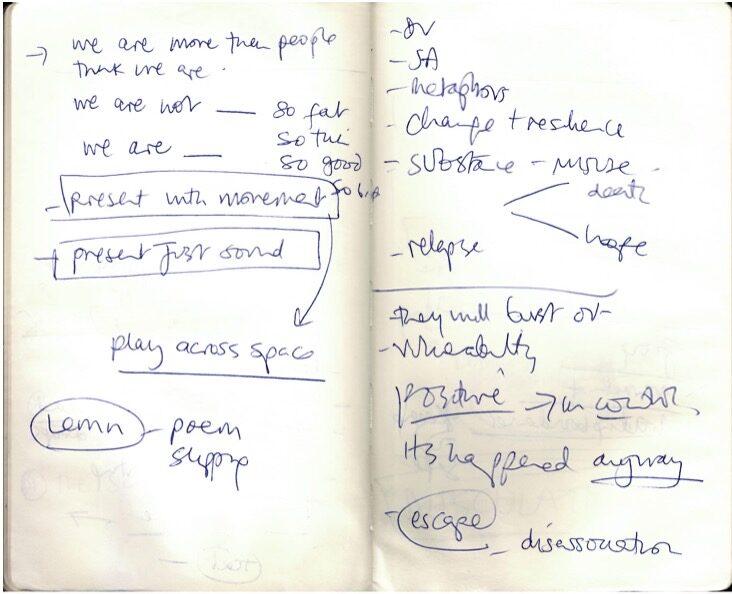 → we are more then people
think we are.
we are not ___ so fat
we are ___ so thi
so good
so big
- present with movement
+ present just sound
play across space
Lemn - poem
slipping
- DV
- SA
- metaphors
- change + resilience
- substance - misuse.
death
hope
- relapse
- they will burst out
- vulnerability
positive → in control
It's happened anyway
- escape
- disassociation